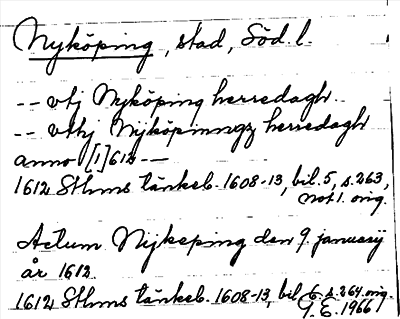 Nyköping, stad, Söd. l.
-- vtj Nyköping herredagh --
-- vthj Nyköpinngz herredagh
anno [1]612 --
1612 Sthms tänkeb. 1608-13, bil. 5, s. 263,
not 1. orig.
Actum Nijkeping den 9. januarij
år 1612.
1612 Sthms tänkeb. 1608-13, bil. 6. s. 264. orig.
G. E. 1966